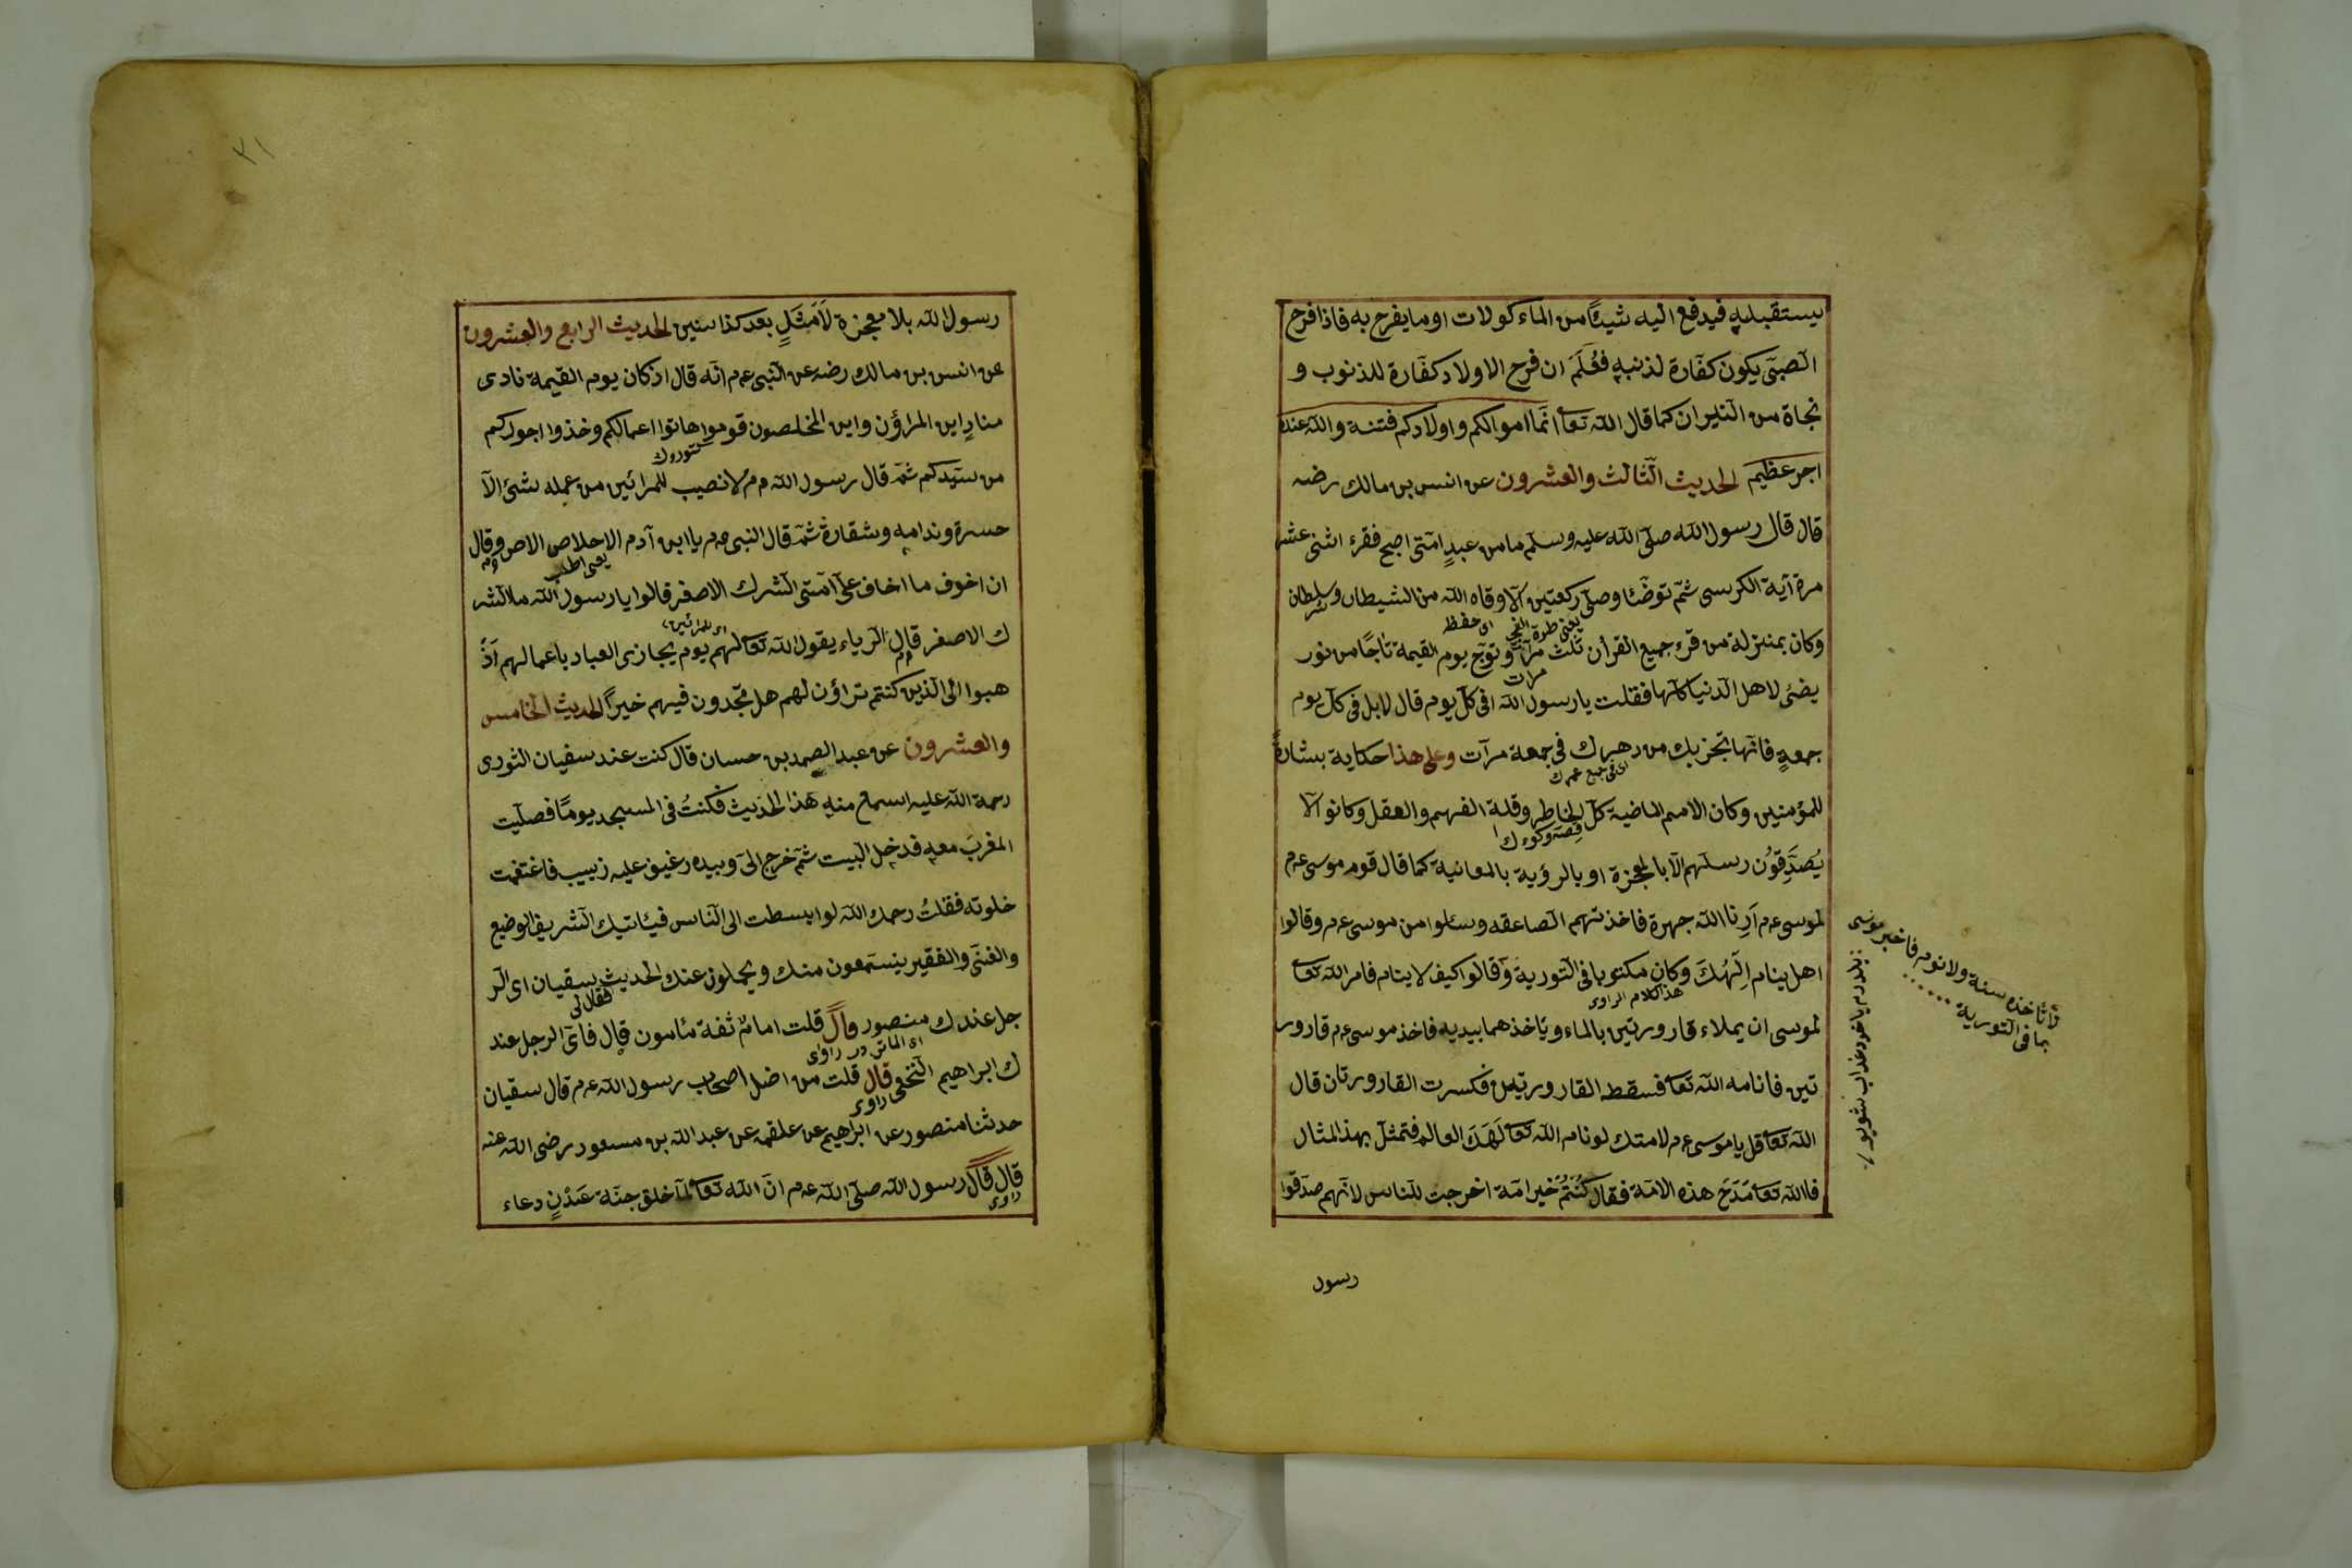 يستقبله فيدفع اليه شيئًا من الماءكولات او ما يفرح به فاذا فرح
الصّبىّ يكون كفّارة لذنبهٖ فعُلَمَ ان فرح الاولاد كفّارة للذنوب و
نجاة من النيران كما قال الله تعا انّما اموالكم واولادكم فتنة والله عنده
اجر عظيم الحديث الثّالث والعشرون عن انس بن مالك رضه
قال قال رسول الله صلّى الله عليه وسلّم ما من عبدٍ امّتى اصبح فقرء اثنى عشر
مرة آية الكرسى ثمّ توضّئا وصلّى ركعتين الّا وقاه الله من الشيطان وسلطان
يعنى طرة الفجر اى حفظ
وكان بمنزلة من قرء جميع القرأن ثلث مرّات وتوّج يوم القيمة تاجًا من نور
مرات
يضئ لاهل الدّنيا كلّها فقلت يا رسول الله افى كلّ يوم قال لا بل فى كلّ يوم
جمعةٍ فانّها تجزيك من دهرك فى جمعة مرّات وعلى هذا حكاية بشارة
اى فى جميع عمرك
للمؤمنين وكان الامم الماضية كلّ الخاطر وقلة الفهم والعقل وكانوا لا
يُصَدِّقوُن رسلهم الّا بالمعجزة او بالرؤية بالمعانية كما قال قوم موسى ءم
لموسى ءم اَرِنا الله جهرة فاخذتهم الصاعقه وسئلوا من موسى ءم وقالوا
اهل ينام اِلٰهُكَ وكان مكتوبا فى التّورية وقالوا كيف لا ينام فامر الله تعا
هذا كلام الراوى
لموسى ان يملاء قارورتين بالماء وياخذهما بيديه فاخذ موسى ءم قارور
تين فانامه الله تعا فسقط القارورتين فكسرت القارورتان قال
الله تعا قل يا موسى ءم لامتك لو نام الله تعا لَهَكَ العالم فتمثّل بهذا المثال
فاالله تعا مَدَحَ هذه الامّة فقال كُنتُمْ خير امّة اخرجت للناس لانّهم صدّقوا
لا تاخذه سنة ولا نوم فاخبر موسى
بما فى التورية
رسول
٢١
رسول الله بلا معجزة لاَمَثَلٍ بعد كذا سنين الحديث الرابع والعشرون
عن انس بن مالك رضه عن النّبى ءم انّه قال اذ كان يوم القيمة نادى
منادٍ اين المراؤن واين المخلصون قوموا هاتوا اعمالكم وخذوا اجوركم
من سيّدكم ثمّ قال رسول الله ءم لا نصيب للمرائين من عمله شئ الّا
حسرة وندامة وشقارة ثمّ قال النبى ءم يا ابن آدم الاخلاص الاص وقال
يعنى اطلب
ان اخوف ما اخاف على امّتى الشرك الاصغر قالوا يا رسول الله ما الشر
اى للمرائين
ك الاصغر قال الرياء يقول الله تعا لهم يوم يجازى العباد باعمالهم اذ
هبوا الى الّذين كنتم تراؤن لهم هل تجدون فيهم خيراً الحديث الخامس
والعشرون عن عبد الصمد بن حسان قال كنت عند سفيان الثورى
رحمة الله عليه اسماع منه هذا الحديث فكنتُ فى المسجد يومًا فصلّيت
المغربَ معهٖ فدخل البيت ثمّ خرج الىّ وبيده رغيف عليه زبيب فاغتفمت
خلوته فقلتُ رحمك الله لو ابسطت الى النّاس فيئاتيك الشريف الوضيع
والغنى والفقير ينستمعون منك ويحملون عنك الحديث سفيان اى الر
فقال لى
جل عندك منصور قال قلت امامٌ ثقة مئامون قال فاىّ الرجل عند
راوى
ك ابراهيم النّخعى قال قلت من افضل اصحاب رسول الله ءم قال سفيان
راوى
حدثنا منصور عن ابراهيم عن علقمة عن عبد الله بن مسعود رضى الله عنه
قال قال رسول الله صلّى الله ءم انّ الله تعا لمّا خلق جنّة عَدْنٍ دعاء
راوى